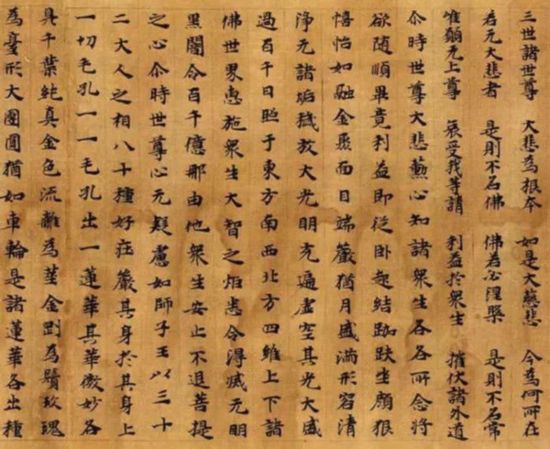 三世諸世尊 大悲為根本 如是大慈悲 今為何所在
若无大悲者 是則不名佛 佛若必涅槃 是則不名常
惟願无上尊 哀受我等請 利益於衆生 摧伏諸外道
尒時世尊大悲薰心知諸衆生各各所念將
欲随順畢竟利益即從卧起結跏趺坐顔貌
憘怡如融金聚面目端嚴猶月盛滿形容清
淨无諸垢穢放大光明充遍虚空其光大盛
過百千日照于東方南西北方四維上下諸
佛世界惠施衆生大智之炬悉令得滅无明
黑闇令百千億那由他衆生安止不退菩提
之心尒時世尊心无疑慮如師子王以三十
二大人之相八十種好莊嚴其身於其身上
一切毛孔一一毛孔出一蓮華其華微妙各
具千葉純真金色流離為莖金剛為鬚玫瑰
為臺形大團圓猶如車輪是諸蓮華各出種